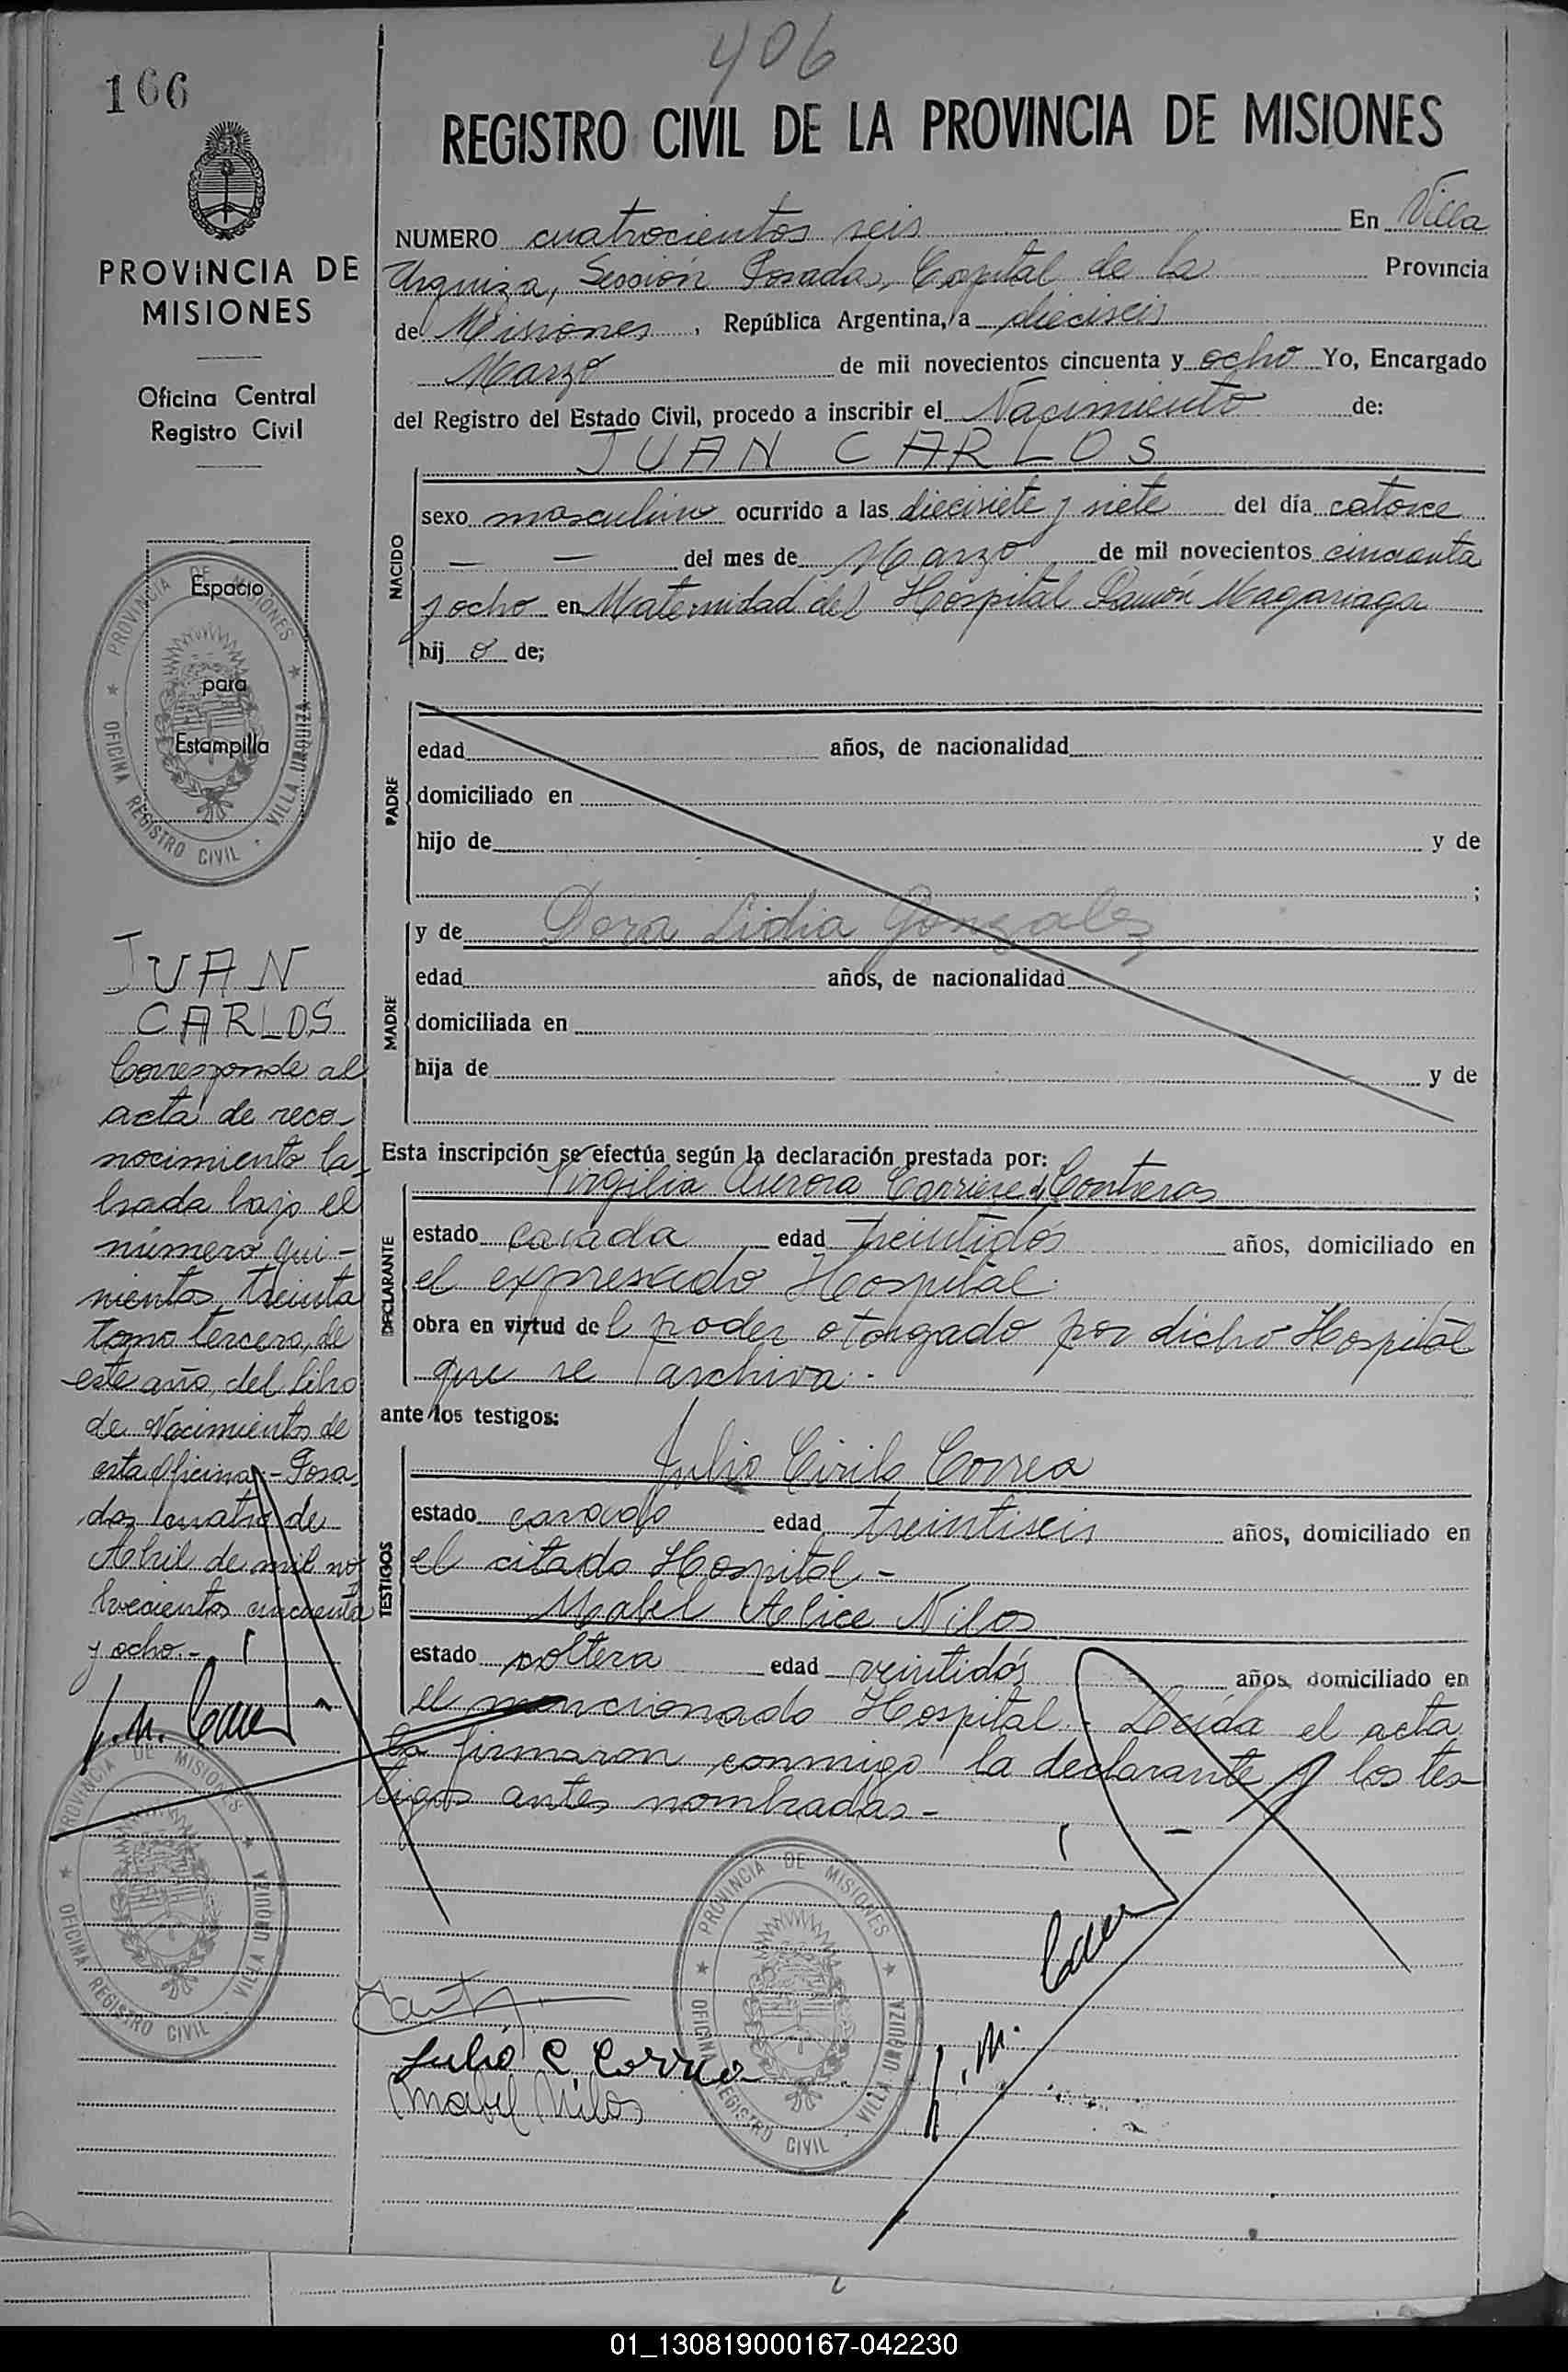 406
166
REGISTRO CIVIL DE LA PROVINCIA DE MISIONES
PROVINCIA DE
MISIONES
Oficina Central
Registro Civil
NUMERO cuatrocientos seis En Villa
Urquiza, Sección Posadas, Capital de la Provincia
de Misiones, República Argentina, a dieciseis
Marzo de mil novecientos cincuenta y ocho Yo, Encargado
del Registro del Estado Civil, procedo a inscribir el Nacimiento de:
JUAN CARLOS
NACIDO
sexo masculino ocurrido a las diecisiete y siete del día catorce
— — del mes de Marzo de mil novecientos cincuenta
y ocho en Maternidad del Hospital Ramón Magariaga
hij o de;
Espacio
para
Estampilla
PROVINCIA DE MISIONES
OFICINA REGISTRO CIVIL · VILLA URQUIZA
PADRE
edad años, de nacionalidad
domiciliado en
hijo de y de
;
MADRE
y de Dora Lidia Gonzalez
edad años, de nacionalidad
domiciliada en
hija de y de
JUAN
CARLOS
Corresponde al
acta de reco-
nocimiento la-
brada bajo el
número qui-
nientos treinta
tomo tercero, de
este año, del libro
de Nacimientos de
esta oficina.- Posa-
das, cuatro de
Abril de mil no-
vecientos cincuenta
y ocho.-
Esta inscripción se efectúa según la declaración prestada por:
Virgilia Aurora Carriere de Contreras
DECLARANTE
estado casada edad treintidós años, domiciliado en
el expresado Hospital.
obra en virtud del poder otorgado por dicho Hospital
que se archiva.-
ante los testigos:
TESTIGOS
Julio Cirilo Correa
estado casado edad treintiseis años, domiciliado en
el citado Hospital -
Mabel Alice Nilos
estado soltera edad veintidós años, domiciliado en
el mencionado Hospital.- Leída el acta
la firmaron conmigo la declarante y los tes-
tigos antes nombrados -
PROVINCIA DE MISIONES
OFICINA REGISTRO CIVIL · VILLA URQUIZA
PROVINCIA DE MISIONES
OFICINA REGISTRO CIVIL · VILLA URQUIZA
Julio C. Correa
Mabel Nilos
01_130819000167-042230